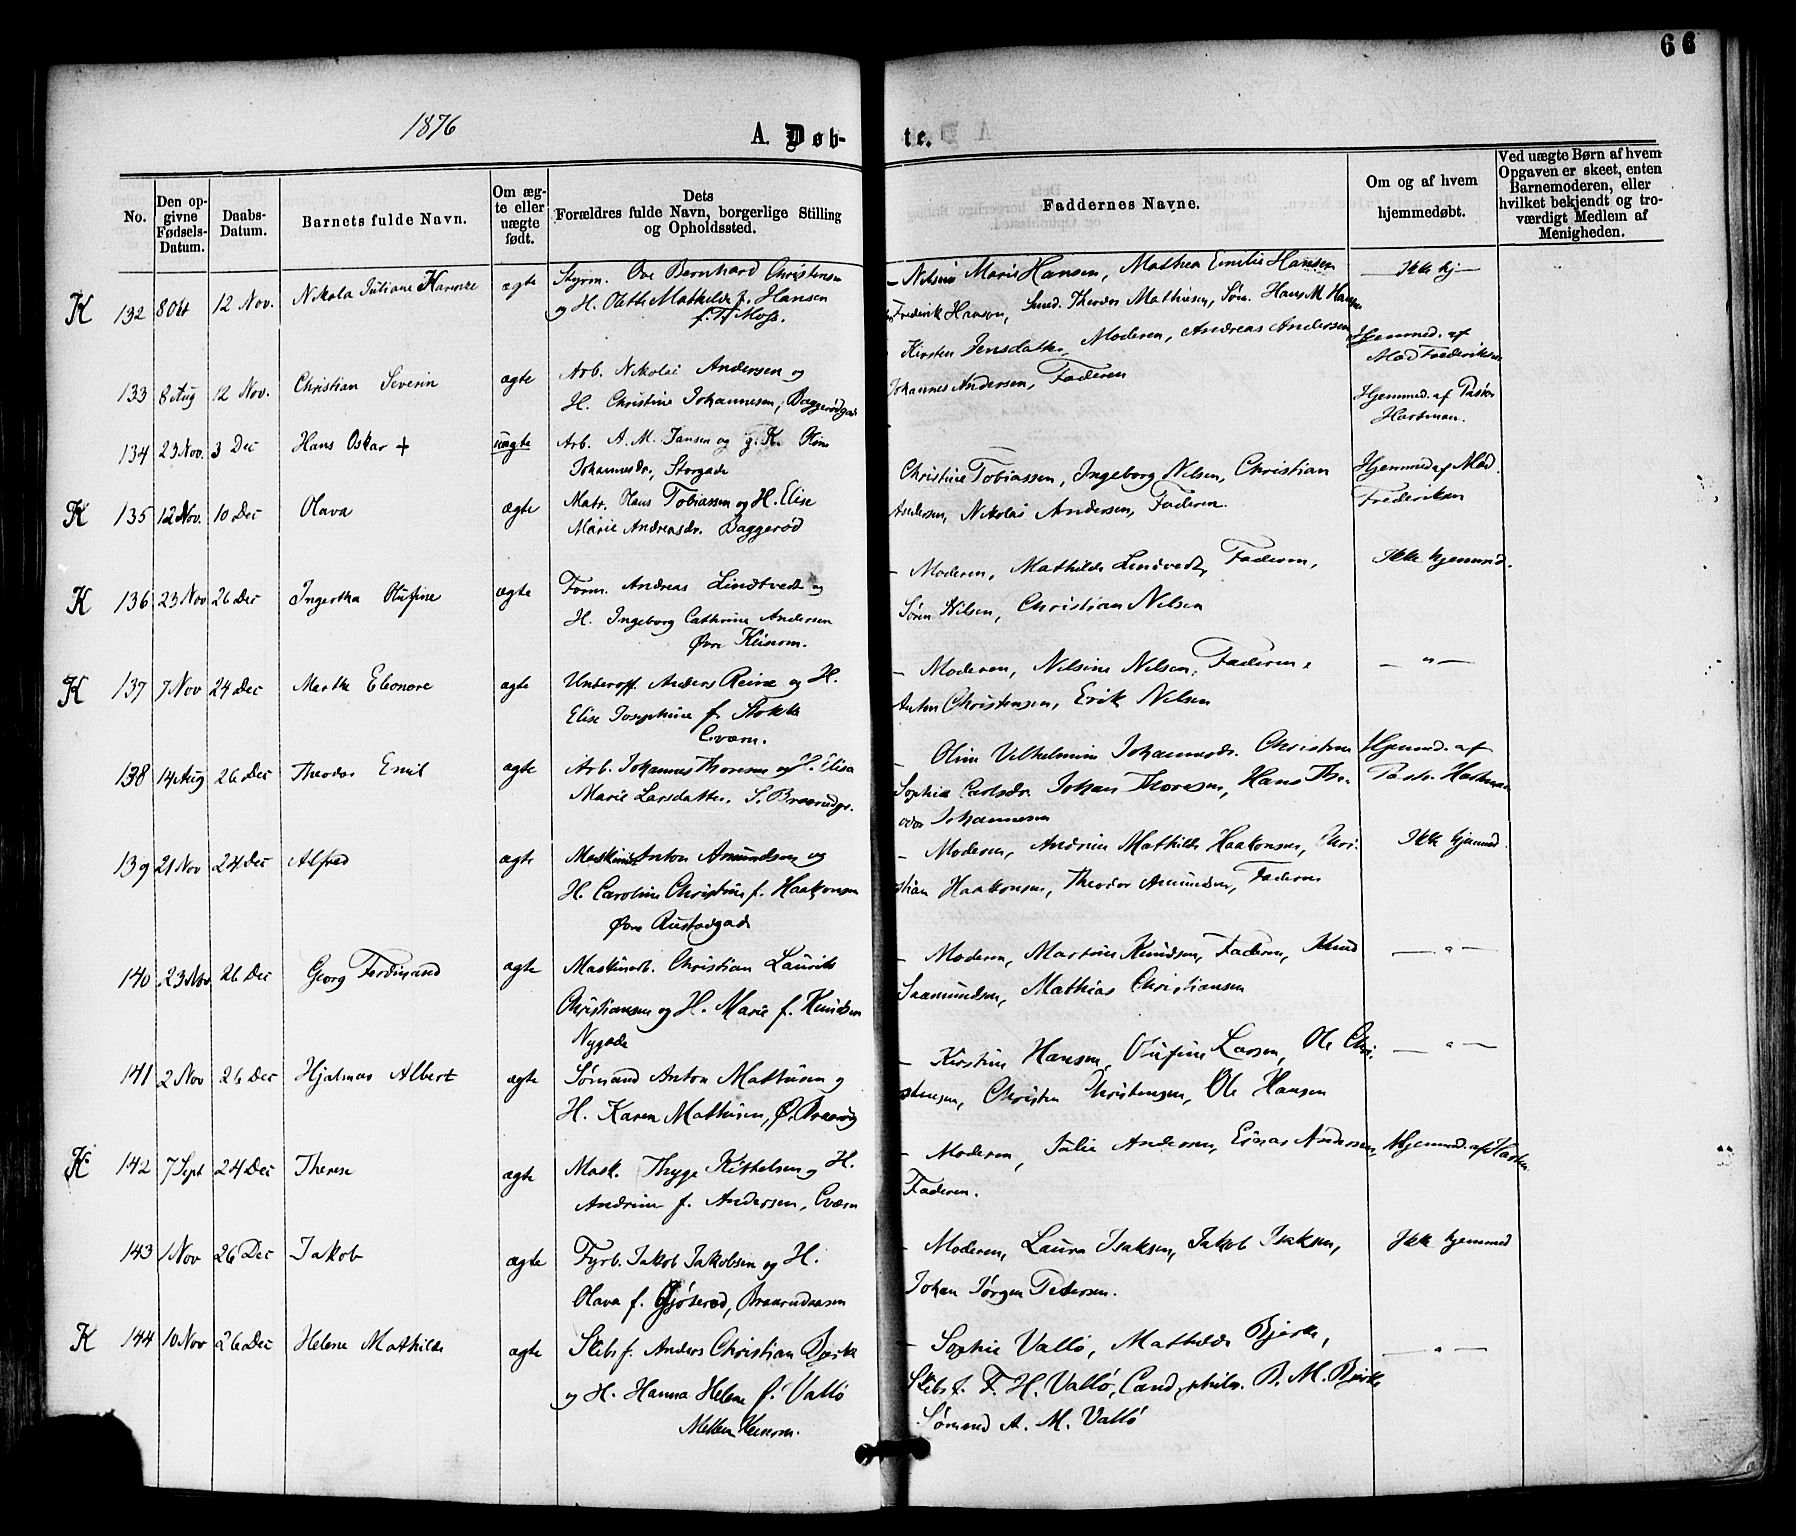 66
1876
A. Døb-
te.
No.
Den op-
givne
Fødsels-
Datum.
Daabs-
Datum.
Barnets fulde Navn.
Om æg-
te eller
uægte
født.
Dets
Forældres fulde Navn, borgerlige Stilling
og Opholdssted.
Faddernes Navne.
Om og af hvem
hjemmedøbt.
Ved uægte Børn af hvem
Opgaven er skeet, enten
Barnemoderen, eller
hvilket bekjendt og tro-
værdigt Medlem af
Menigheden.
K 132 8 Okt 12 Nov. Nikola Juliane ægte
Styrm. Ove Bernhard Christensen
og H. Mathilde f. Hansen
f. Moss.
Marie Hansen, Mathea Emilie Hansen
Frederik Hansen, Smed. Theodor Mathisen, Søm. Hans M. Hansen
Ikke hj
133 8 Aug 12 Nov. Christian Severin ægte
Arb. Nikolai Andersen og
H. Christine Johannesen, Baggerødgad
Kirsten Jensdatter, Moderen, Andreas Andersen
Johannes Andersen, Faderen
Hjemmed. af
Mad Frederiksen
134 23 Nov. 3 Dec Hans Oskar + uægte
Arb. A. M. Jansen og g. K.
Johannesdr, Storgade
Hjemmed. af Pastor
Hartman.
K 135 12 Nov. 10 Dec Olava ægte
Matr. Olaus Tobiassen og H. Elise
Marie Andreasdr. Baggerød
Christine Tobiassen, Ingeborg Nilsen, Christian
Andersen, Nikolai Andersen, Faderen.
Hjemmed af Mad.
Frederiksen
K 136 23 Nov 26 Dec Ingertha Olufine ægte
Form. Andreas Lindtvedt og
H. Ingeborg Cathrine Andersen
Øvre Keiserm.
— Moderen, Mathilde Lindvedt, Faderen,
Søren Nilsen, Christian Nilsen
Ikke hjemmed.
K 137 7 Nov 24 Dec Marthe Eleonore ægte
Underoff. Anders Reine og H.
Elise Josephine f. Stokke
Cværn.
— Moderen, Nilsine Nilsen, Faderen,
Anton Christensen, Erik Nilsen
— " —
138 14 Aug 26 Dec Theodor Emil ægte
Arb. Johannes Thoresen og H. Elisa
Marie Larsdatter. S. Braarudgr.
— Oline Vilhelmine Johannesdr. Christine
Sophie Carlsdr. Johan Thoresen, Hans The-
odor Johannesen
Hjemmed. af
Pastor Hartman
139 21 Nov 24 Dec Alfred ægte
Maskinist Anton Amundsen og
H. Caroline Christine f. Haakonsen
Øvre Rustadgade
— Moderen, Andrine Mathilde Haakonsen, Chri-
stian Haakonsen, Theodor Amundsen, Faderen
Ikke hjemmed
140 23 Nov 26 Dec Georg Ferdinand ægte
Maskinarb. Christian Laurits
Christiansen og H. Marie f. Knudsen
Nygade
— Moderen, Martine Knudsen, Faderen, Knud
Saamundsen, Mathias Christiansen
— " —
141 2 Nov 26 Dec Hjalmar Albert ægte
Sømand Anton Mathisen og
H. Karen Mathisen, Ø. Braarud
— Kirstine Hansen, Olufine Larsen, Ole Chri-
stensen, Christen Christensen, Ole Hansen
— " —
K 142 7 Sept 24 Dec Therese ægte
Mask. Thyge Kittelsen og H.
Andrine f. Andersen, Cværn
— Moderen, Julie Andersen, Andersen,
Faderen.
Hjemmed. af
143 1 Nov 26 Dec Jakob ægte
Fyrb. Jakob Jakobsen og H.
Olava f. Gjøserød, Braarudaasen
— Moderen, Laura Isaksen, Jakob Isaksen,
Johan Jørgen Petersen.
Ikke hjemmed
K 144 10 Nov 26 Dec Helene Mathilde ægte
Skibsf. Anders Christian Bjerke
og H. Hanna Helene f. Vallø
Mellem Keiserm.
— Sophie Vallø, Mathilde Bjerke,
Skibsf. F. H. Vallø, Cand. philos. B. M. Bjerke
Sømand A. M. Vallø
— " —